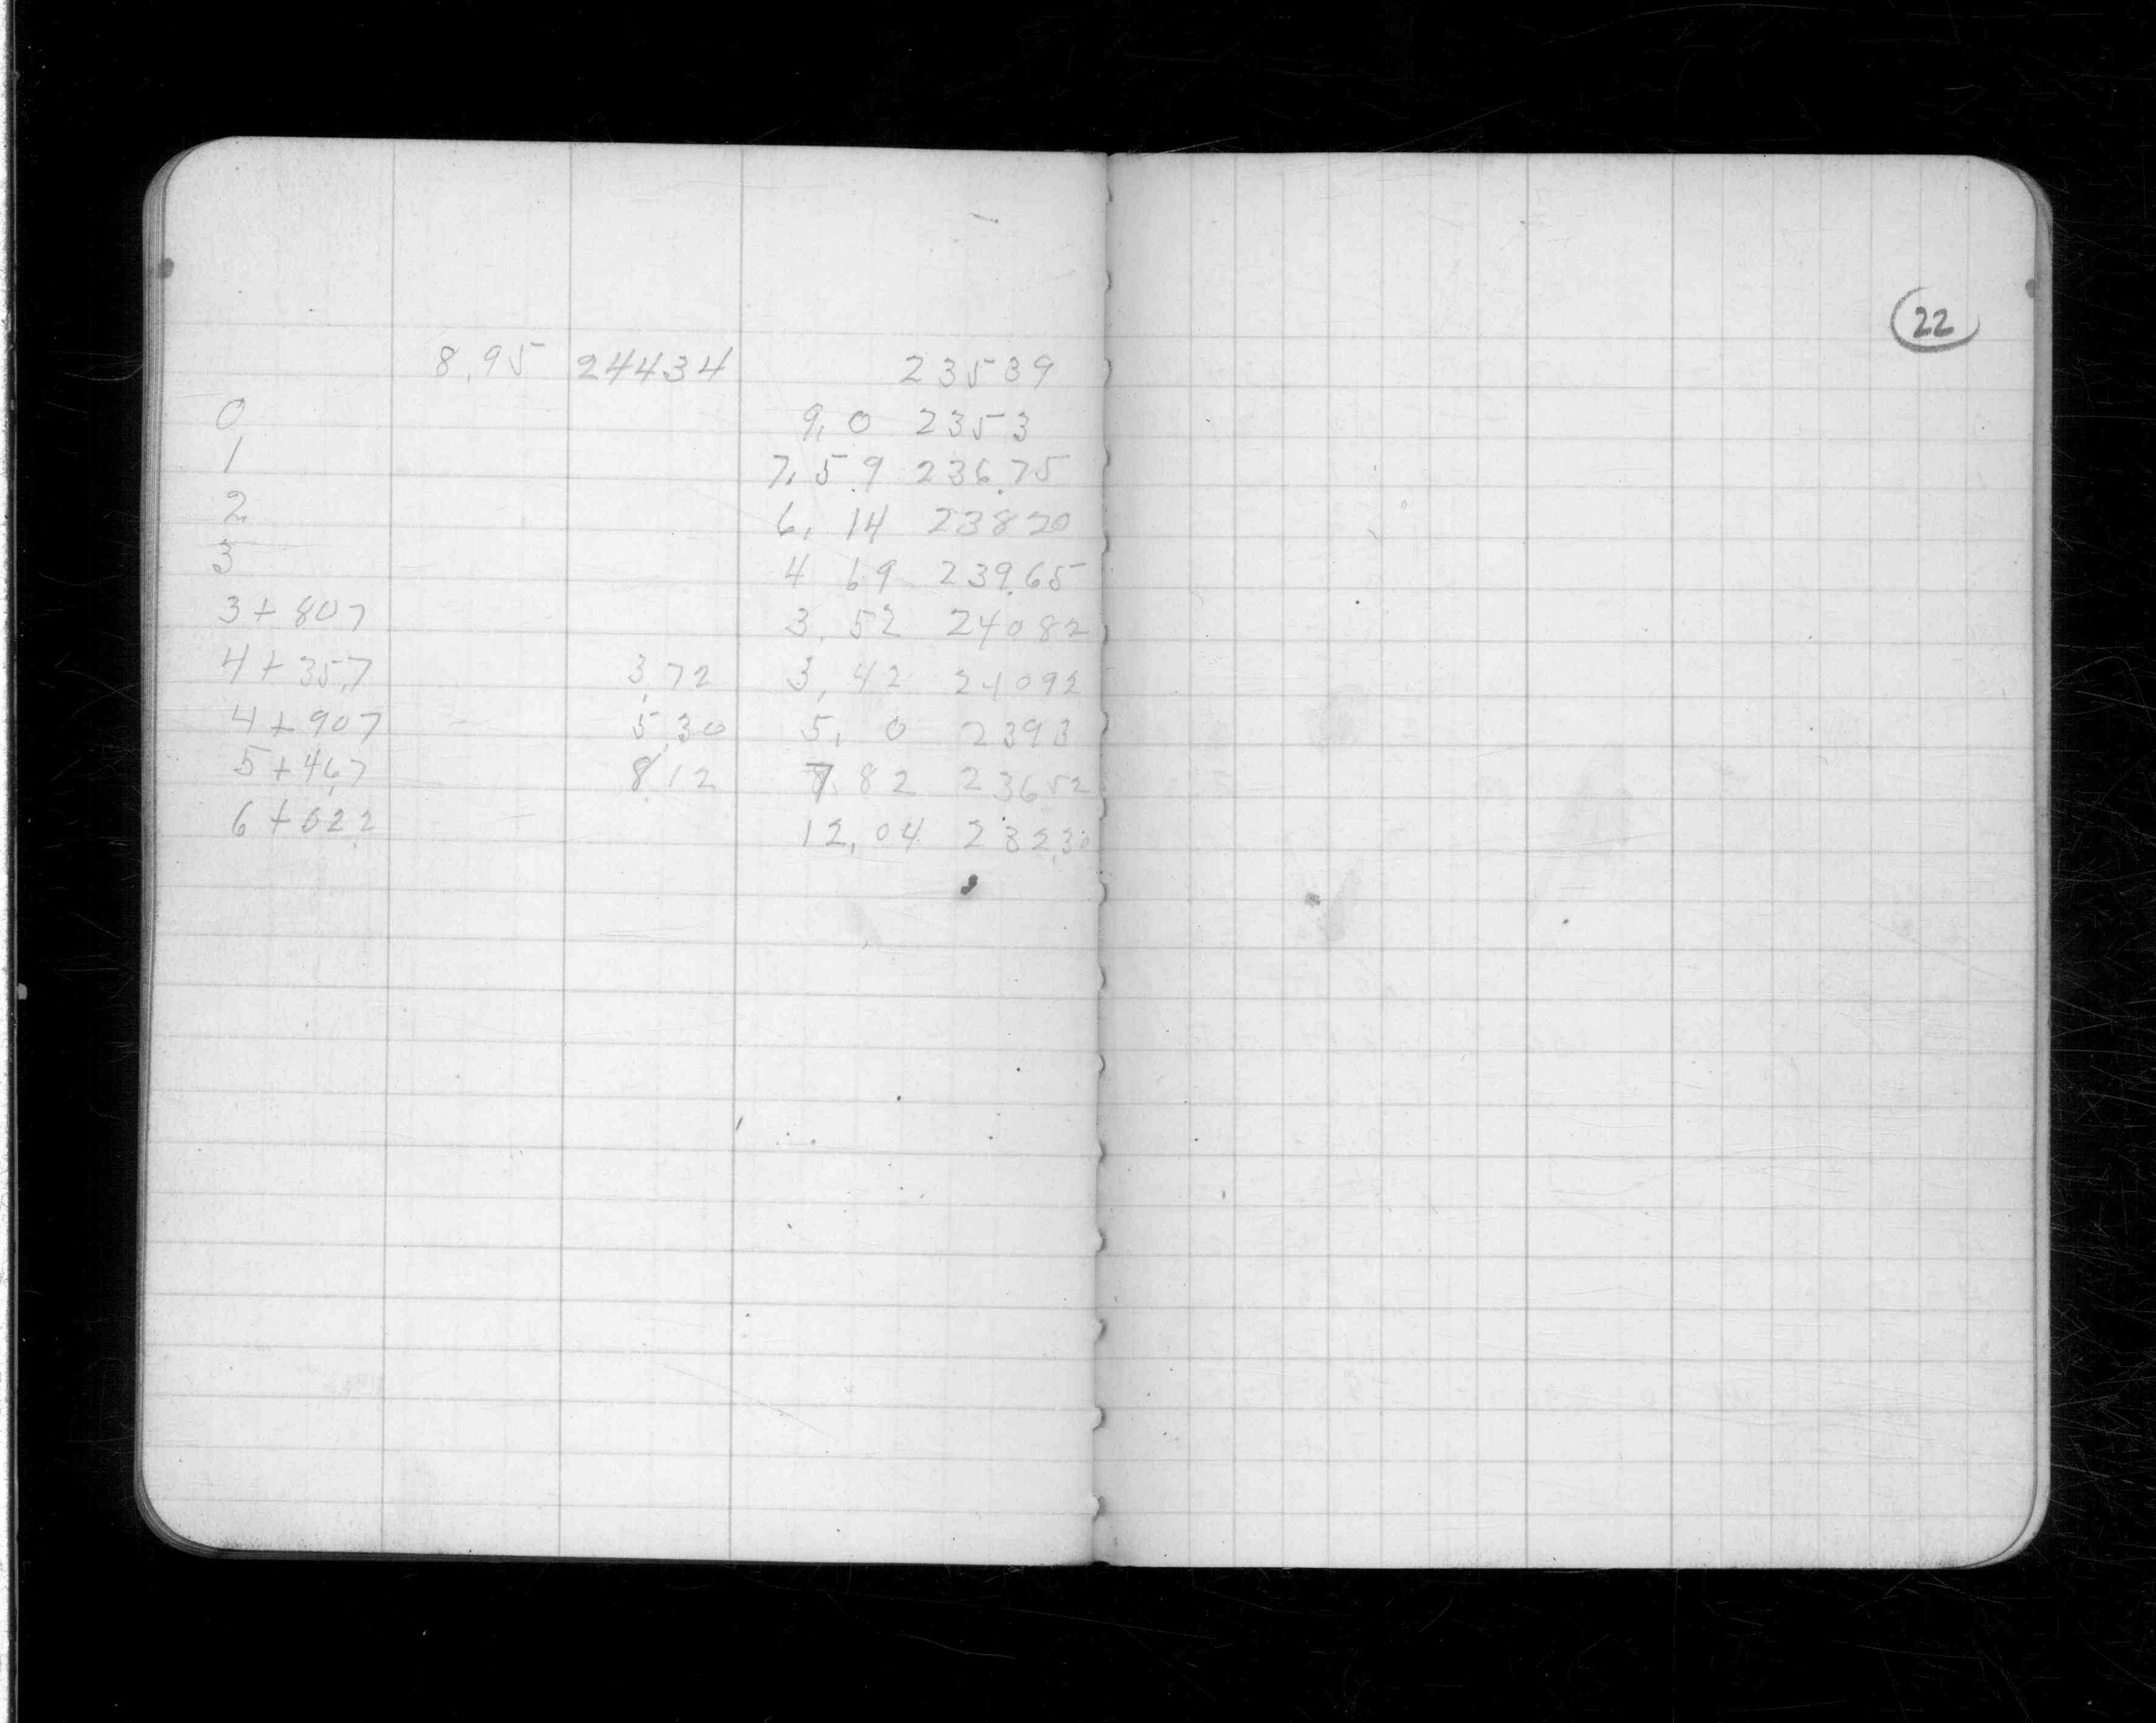 22
8.95 24434 23539
0 9.0 2353
1 7.59 236.75
2 6.14 23820
3 4 69 239.65
3+807 3.52 24082
4+35.7 3.72 3.42 24092
4+907 5.30 5.0 2393
5+46.7 8.12 7.82 23652
6+022 12.04 232.30